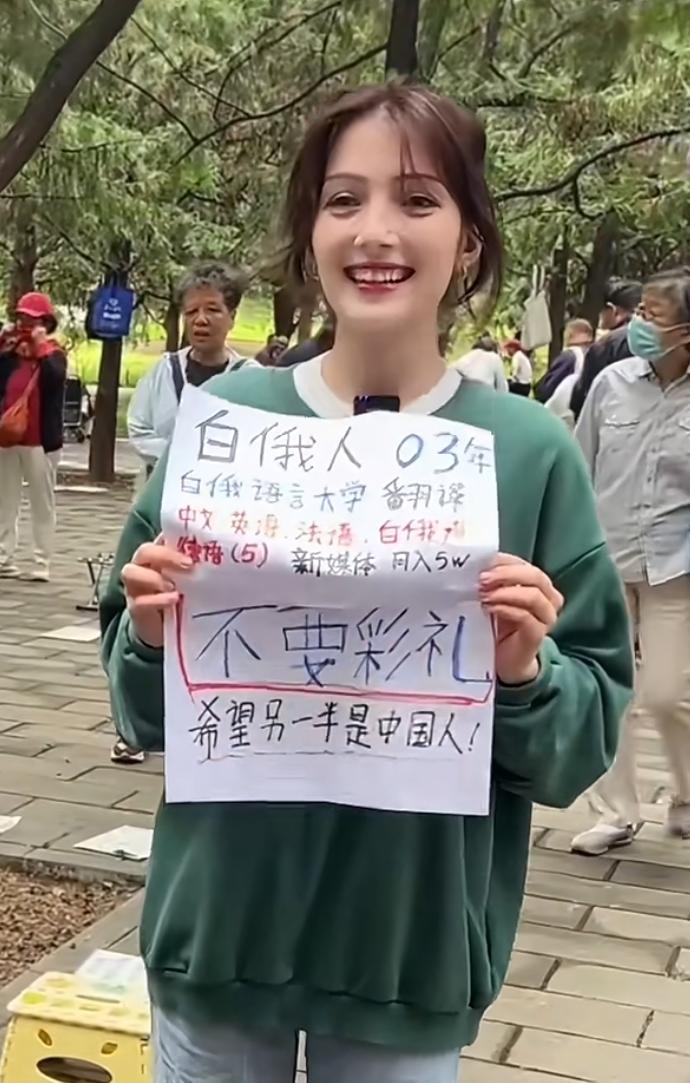 白俄人 03年
白俄语言大学 翻译
中文.英语.法语.白俄
德语(5) 新媒体 月入5w
不要彩礼
希望另一半是中国人!